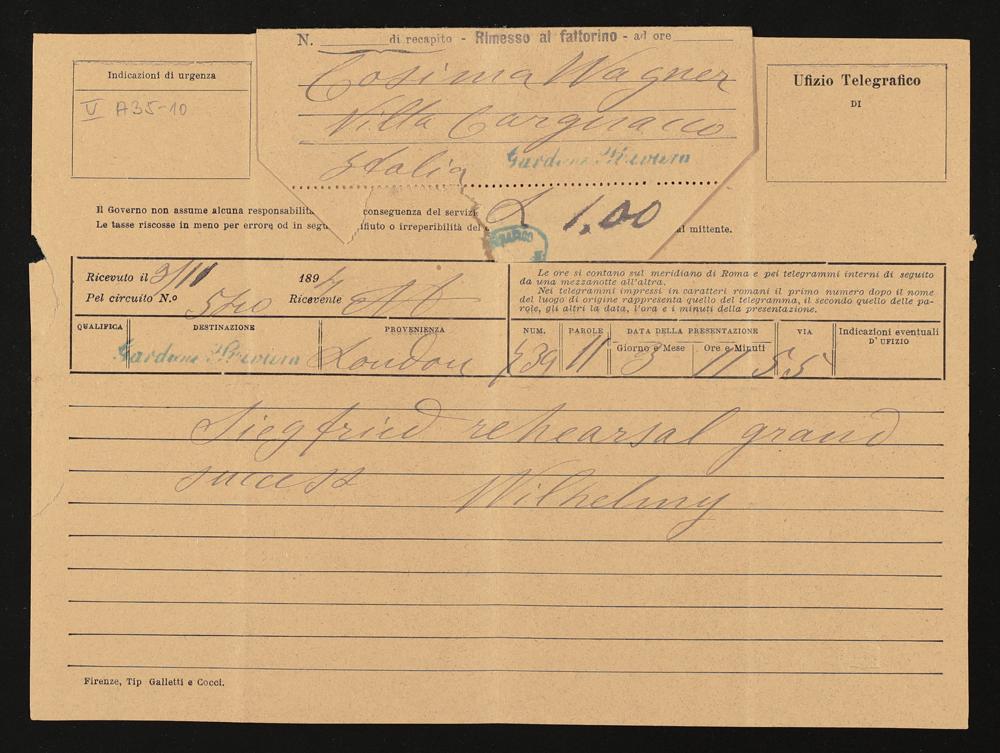 N. di recapito - Rimesso al fattorino - ad ore
Cosima Wagner
Villa Cargnacco
Italia Gardone Riviera
Indicazioni di urgenza
V A35-10
Ufizio Telegrafico
DI
£ 1,00
Il Governo non assume alcuna responsabilità conseguenza del servizi
Le tasse riscosse in meno per errore od in segu ifiuto o irreperibilità del al mittente.
Ricevuto il 3/11 189
Pel circuito N.o Ricevente
Le ore si contano sul meridiano di Roma e pei telegrammi interni di seguito
da una mezzanotte all'altra.
Nei telegrammi impressi in caratteri romani il primo numero dopo il nome
del luogo di origine rappresenta quello del telegramma, il secondo quello delle pa-
role, gli altri la data, l'ora e i minuti della presentazione.
QUALIFICA DESTINAZIONE PROVENIENZA NUM. PAROLE DATA DELLA PRESENTAZIONE VIA Indicazioni eventuali
Giorno e Mese Ore e Minuti D'UFIZIO
Gardone Riviera London 39 11 3 11 55
Siegfried rehearsal grand
success Wilhelmy
Firenze, Tip Galletti e Cocci.